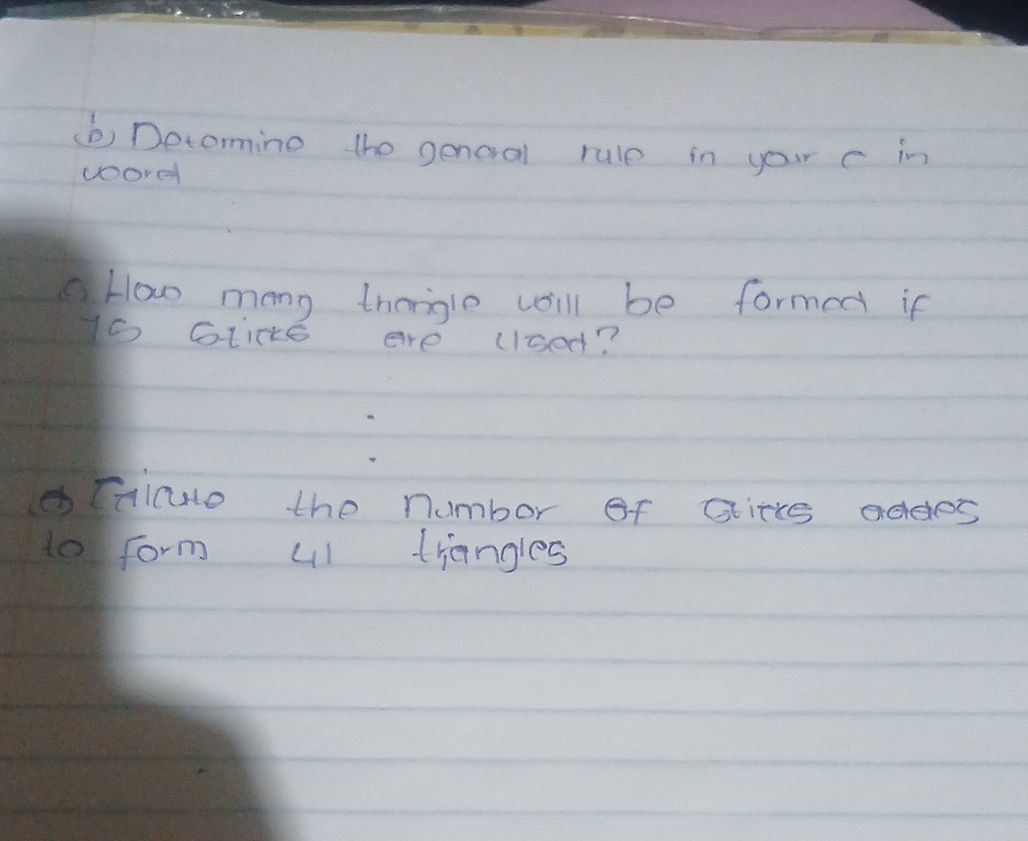 (b) Determine the general rule in your c in
word
c) How many triangle will be formed if
75 Sticks are used?
the number of Sticks addes
to form 41 triangles